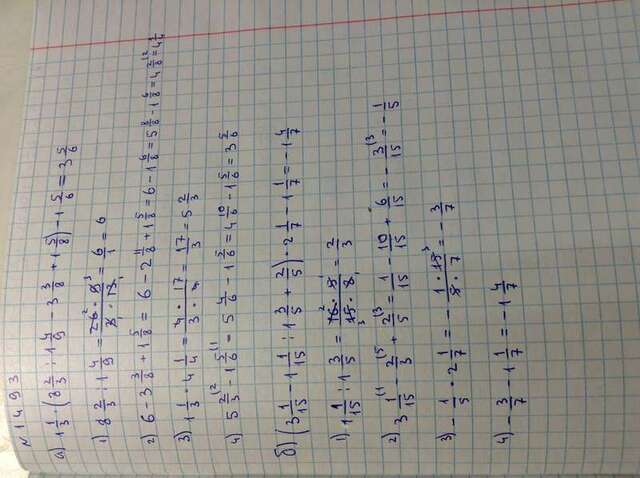 №1493
а) 1 1/3 · (8 2/3 : 1 4/9 - 3 3/8 + 1 5/8) - 1 5/6 = 3 5/6
1) 8 2/3 : 1 4/9 = 26² · 9³ / 3₁ · 13₁ = 6/1 = 6
2) 6 - 3 3/8 + 1 5/8 = 6 - 2 11/8 + 1 5/8 = 6 - 1 6/8 = 5 8/8 - 1 6/8 = 4 2/8⁽² = 4 1/4
3) 1 1/3 · 4 1/4 = 4 · 17 / 3 · 4 = 17/3 = 5 2/3
4) 5 2/3⁽² - 1 5/6⁽¹ = 5 4/6 - 1 5/6 = 4 10/6 - 1 5/6 = 3 5/6
б) (3 1/15 - 1 1/15 : 1 3/5 + 2/5) · 2 1/7 - 1 1/7 = - 1 4/7
1) 1 1/15 : 1 3/5 = 16² · 5¹ / 15₃ · 8₁ = 2/3
2) 3 1/15⁽¹ - 2/3⁽⁵ + 2/5⁽³ = 1/15 - 10/15 + 6/15 = - 3/15⁽³ = - 1/5
3) - 1/5 · 2 1/7 = - 1 · 15³ / 5 · 7 = - 3/7
4) - 3/7 - 1 1/7 = - 1 4/7